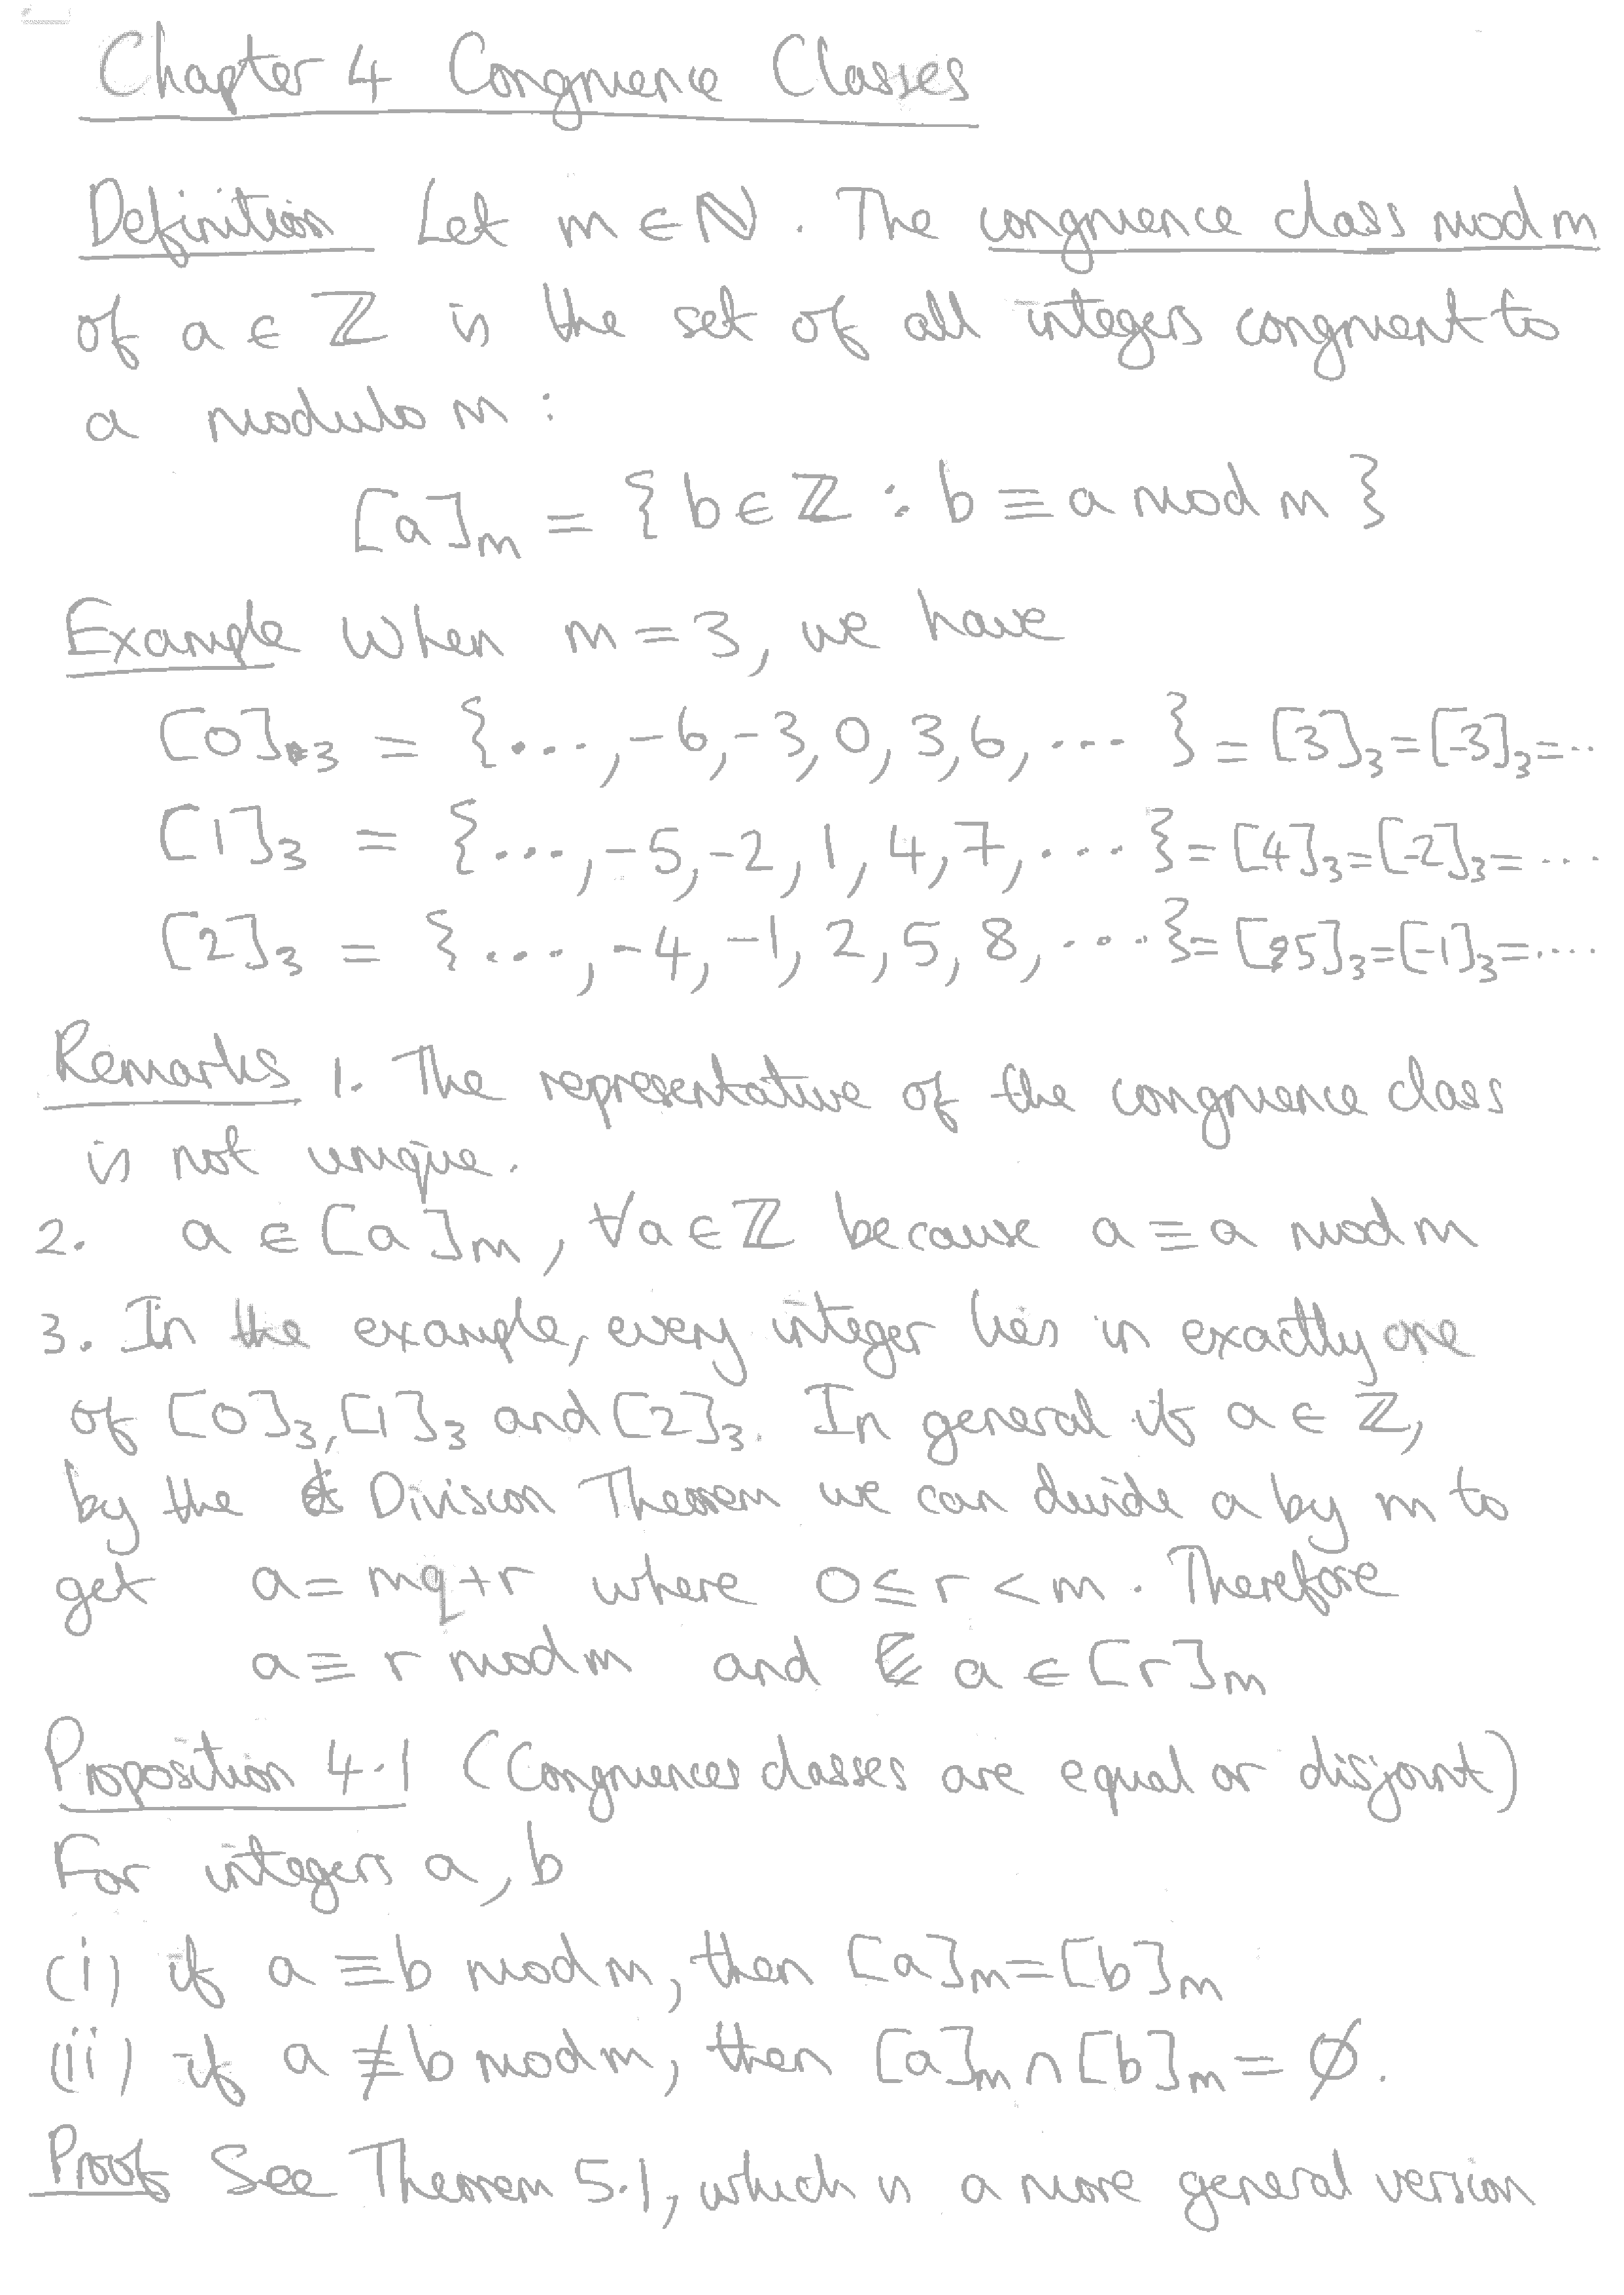 Chapter 4 Congruence Classes
Definition Let m ∈ ℕ. The congruence class mod m
of a ∈ ℤ is the set of all integers congruent to
a modulo m:
[a]ₘ = {b ∈ ℤ : b ≡ a mod m}
Example When m = 3, we have
[0]₃ = {..., -6, -3, 0, 3, 6, ...} = [3]₃ = [-3]₃ = ...
[1]₃ = {..., -5, -2, 1, 4, 7, ...} = [4]₃ = [-2]₃ = ...
[2]₃ = {..., -4, -1, 2, 5, 8, ...} = [5]₃ = [-1]₃ = ...
Remarks 1. The representative of the congruence class
is not unique.
2. a ∈ [a]ₘ, ∀a ∈ ℤ because a ≡ a mod m
3. In the example, every integer lies in exactly one
of [0]₃, [1]₃ and [2]₃. In general if a ∈ ℤ,
by the Division Theorem we can divide a by m to
get a = mq + r where 0 ≤ r < m. Therefore
a ≡ r mod m and a ∈ [r]ₘ
Proposition 4.1 (Congruences classes are equal or disjoint)
For integers a, b
(i) if a ≡ b mod m, then [a]ₘ = [b]ₘ
(ii) if a ≢ b mod m, then [a]ₘ ∩ [b]ₘ = ∅.
Proof See Theorem 5.1, which is a more general version